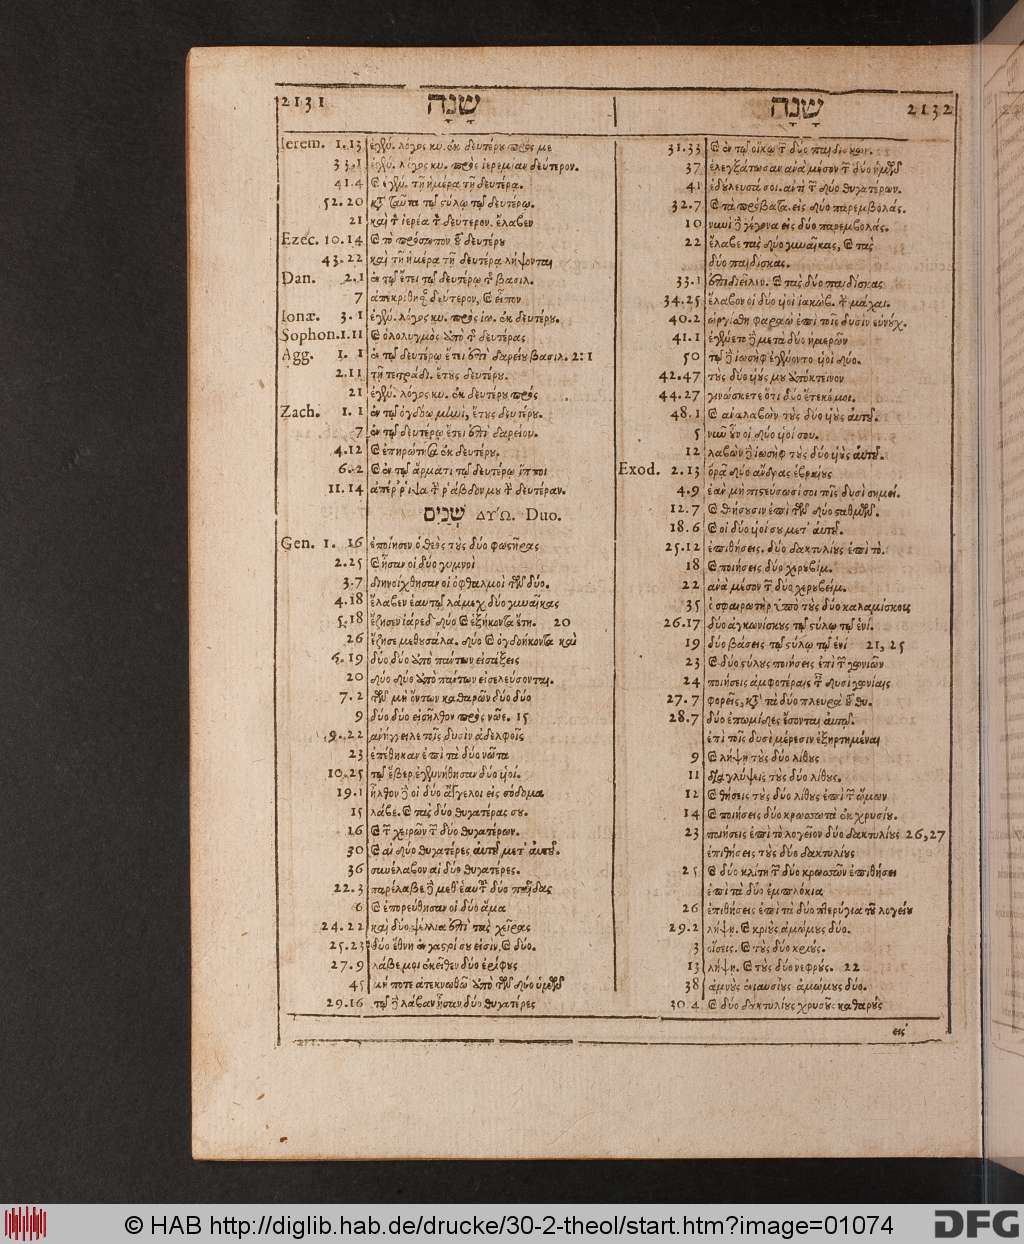 2131 שָׁנָה
Ierem. 1.13 ἐγένετο λόγος κυ. ἐκ δευτέρου πρός με
33.1 ἐγένετο λόγος κυ. πρὸς ἱερεμίαν δεύτερον.
41.4 καὶ ἐγένετο τῇ ἡμέρᾳ τῇ δευτέρᾳ.
52.20 καὶ ταῦτα τῷ στύλῳ τῷ δευτέρῳ.
21 καὶ τὸν ἱερέα τὸν δεύτερον. ἔλαβεν
Ezec. 10.14 καὶ τὸ πρόσωπον τοῦ δευτέρου
43.22 καὶ τῇ ἡμέρᾳ τῇ δευτέρᾳ λήψονται
Dan. 2.1 ἐν τῷ ἔτει τῷ δευτέρῳ τῆς βασιλ.
7 ἀπεκρίθησαν δεύτερον, καὶ εἶπον
Ionæ. 3.1 ἐγένετο λόγος κυ. πρὸς ἰω. ἐκ δευτέρου.
Sophon. 1.11 καὶ ὀλολυγμὸς ἀπὸ τῆς δευτέρας
Agg. 1.1 ἐν τῷ δευτέρῳ ἔτει ἐπὶ δαρείου βασιλ. 2:1
2.11 τῇ τετράδι. ἔτους δευτέρου.
21 ἐγένετο λόγος κυ. ἐκ δευτέρου πρός
Zach. 1.1 ἐν τῷ ὀγδόῳ μηνὶ, ἔτους δευτέρου.
7 ἐν τῷ δευτέρῳ ἔτει ἐπὶ δαρείου.
4.12 καὶ ἐπηρώτησα ἐκ δευτέρου.
6.2 καὶ ἐν τῷ ἅρματι τῷ δευτέρῳ ἵπποι
11.14 ἀπέρριψα τὴν ῥάβδον μου τὴν δευτέραν.
שְׁנַיִם ΔΥ'Ω. Duo.
Gen. 1. 16 ἐποίησεν ὁ θεὸς τοὺς δύο φωστῆρας
2.25 καὶ ἦσαν οἱ δύο γυμνοὶ
3.7 διηνοίχθησαν οἱ ὀφθαλμοὶ τῶν δύο.
4.18 ἔλαβεν ἑαυτῷ λάμεχ δύο γυναῖκας
5.18 ἔζησεν ἰάρεδ δύο καὶ ἑξήκοντα ἔτη. 20
26 ἔζησε μεθουσάλα. δύο καὶ ὀγδοήκοντα καὶ
6.19 δύο δύο ἀπὸ πάντων εἰσάξεις
20 δύο δύο ἀπὸ πάντων εἰσελεύσονται.
7.2 τῶν μὴ ὄντων καθαρῶν δύο δύο
9 δύο δύο εἰσῆλθον πρὸς νῶε. 15
9.22 ἀνήγγειλε τοῖς δυσὶν ἀδελφοῖς
23 ἐπέθηκαν ἐπὶ τὰ δύο νῶτα
10.25 τῷ ἔβερ ἐγενήθησαν δύο υἱοί.
19.1 ἦλθον δὲ οἱ δύο ἄγγελοι εἰς σόδομα
15 λάβε. καὶ τὰς δύο θυγατέρας σου.
16 καὶ τῶν χειρῶν τῶν δύο θυγατέρων.
30 καὶ αἱ δύο θυγατέρες αὐτοῦ μετ' αὐτοῦ.
36 συνέλαβον αἱ δύο θυγατέρες.
22.3 παρέλαβε δὲ μεθ' ἑαυτοῦ δύο παῖδας
6 καὶ ἐπορεύθησαν οἱ δύο ἅμα
24.22 καὶ δύο ψέλλια ἐπὶ τὰς χεῖρας
25.23 δύο ἔθνη ἐν γαστρί σου εἰσιν, καὶ δύο.
27.9 λάβε μοι ἐκεῖθεν δύο ἐρίφους
45 μή ποτε ἀτεκνωθῶ ἀπὸ τῶν δύο ὑμῶν
29.16 τῷ δὲ λάβαν ἦσαν δύο θυγατέρες
שָׁנָה 2132
31.33 καὶ ἐν τῷ οἴκῳ τῶν δύο παιδισκῶν.
37 ἐλεγξάτωσαν ἀνὰ μέσον τῶν δύο ἡμῶν
41 ἐδούλευσά σοι. ἀντὶ τῶν δύο θυγατέρων.
32.7 καὶ τὰ πρόβατα. εἰς δύο παρεμβολάς.
10 νυνὶ δὲ γέγονα εἰς δύο παρεμβολάς.
22 ἔλαβε τὰς δύο γυναῖκας, καὶ τὰς
δύο παιδίσκας.
33.1 ἐπιδιεῖλεν. καὶ τὰς δύο παιδίσκας
34.25 ἔλαβον οἱ δύο υἱοὶ ἰακὼβ. τὴν μάχαι.
40.2 ὠργίσθη φαραὼ ἐπὶ τοῖς δυσὶν εὐνούχ.
41.1 ἐγένετο δὲ μετὰ δύο ἡμερῶν
50 τῷ δὲ ἰωσὴφ ἐγένοντο υἱοὶ δύο.
42.47 τοὺς δύο υἱούς μου ἀπόκτεινον
44.27 γινώσκετε ὅτι δύο ἔτεκέ μοι.
48.1 καὶ ἀναλαβὼν τοὺς δύο υἱοὺς αὐτοῦ.
5 νῦν οὖν οἱ δύο υἱοί σου.
12 λαβὼν δὲ ἰωσὴφ τοὺς δύο υἱοὺς αὐτοῦ.
Exod. 2.13 ὁρᾷ δύο ἄνδρας ἑβραίους
4.9 ἐὰν μὴ πιστεύσωσί σοι τοῖς δυσὶ σημεί.
12.7 καὶ θήσουσιν ἐπὶ τῶν δύο σταθμῶν.
18.6 καὶ οἱ δύο υἱοί σου μετ' αὐτοῦ.
25.12 ἐπιθήσεις. δύο δακτυλίους ἐπὶ τὸ.
18 καὶ ποιήσεις δύο χερουβίμ.
22 ἀνὰ μέσον τῶν δύο χερουβείμ.
35 ὁ σφαιρωτὴρ ὑπὸ τοὺς δύο καλαμίσκους
26.17 δύο ἀγκωνίσκους τῷ στύλῳ τῷ ἑνί.
19 δύο βάσεις τῷ στύλῳ τῷ ἑνί 21, 25
23 καὶ δύο στύλους ποιήσεις ἐπὶ τῶν γωνιῶν
24 ποιήσεις ἀμφοτέραις ταῖς δυσὶ γωνίαις
27.7 φορεῖς, κατὰ τὰ δύο πλευρὰ τοῦ θυ.
28.7 δύο ἐπωμίδες ἔσονται αὐτῷ.
ἐπὶ τοῖς δυσὶ μέρεσιν ἐξηρτημέναι
9 καὶ λήψῃ τοὺς δύο λίθους
11 διαγλύψεις τοὺς δύο λίθους.
12 καὶ θήσεις τοὺς δύο λίθους ἐπὶ τῶν ὤμων
14 καὶ ποιήσεις δύο κροσσωτὰ ἐκ χρυσίου.
23 ποιήσεις ἐπὶ τὸ λογεῖον δύο δακτυλίους 26,27
ἐπιθήσεις τοὺς δύο δακτυλίους
25 καὶ δύο κλίτη τῶν δύο κροσσῶν ἐπιθήσει
ἐπὶ τὰ δύο ἐμπλόκια
26 ἐπιθήσεις ἐπὶ τὰ δύο πτερύγια τοῦ λογείου
29.2 λήψῃ. καὶ κριοὺς ἀμώμους δύο.
3 οἴσεις. καὶ τοὺς δύο κριούς.
13 λήψῃ. καὶ τοὺς δύο νεφρούς. 22
38 ἀμνοὺς ἐνιαυσίους ἀμώμους δύο.
30.4 καὶ δύο δακτυλίους χρυσοῦς καθαροὺς
εἰς
© HAB http://diglib.hab.de/drucke/30-2-theol/start.htm?image=01074
DFG